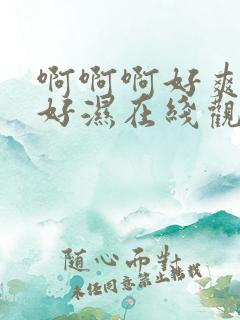 啊啊啊好爽
好濕在綫觀
随心而對
未经同意禁止转载